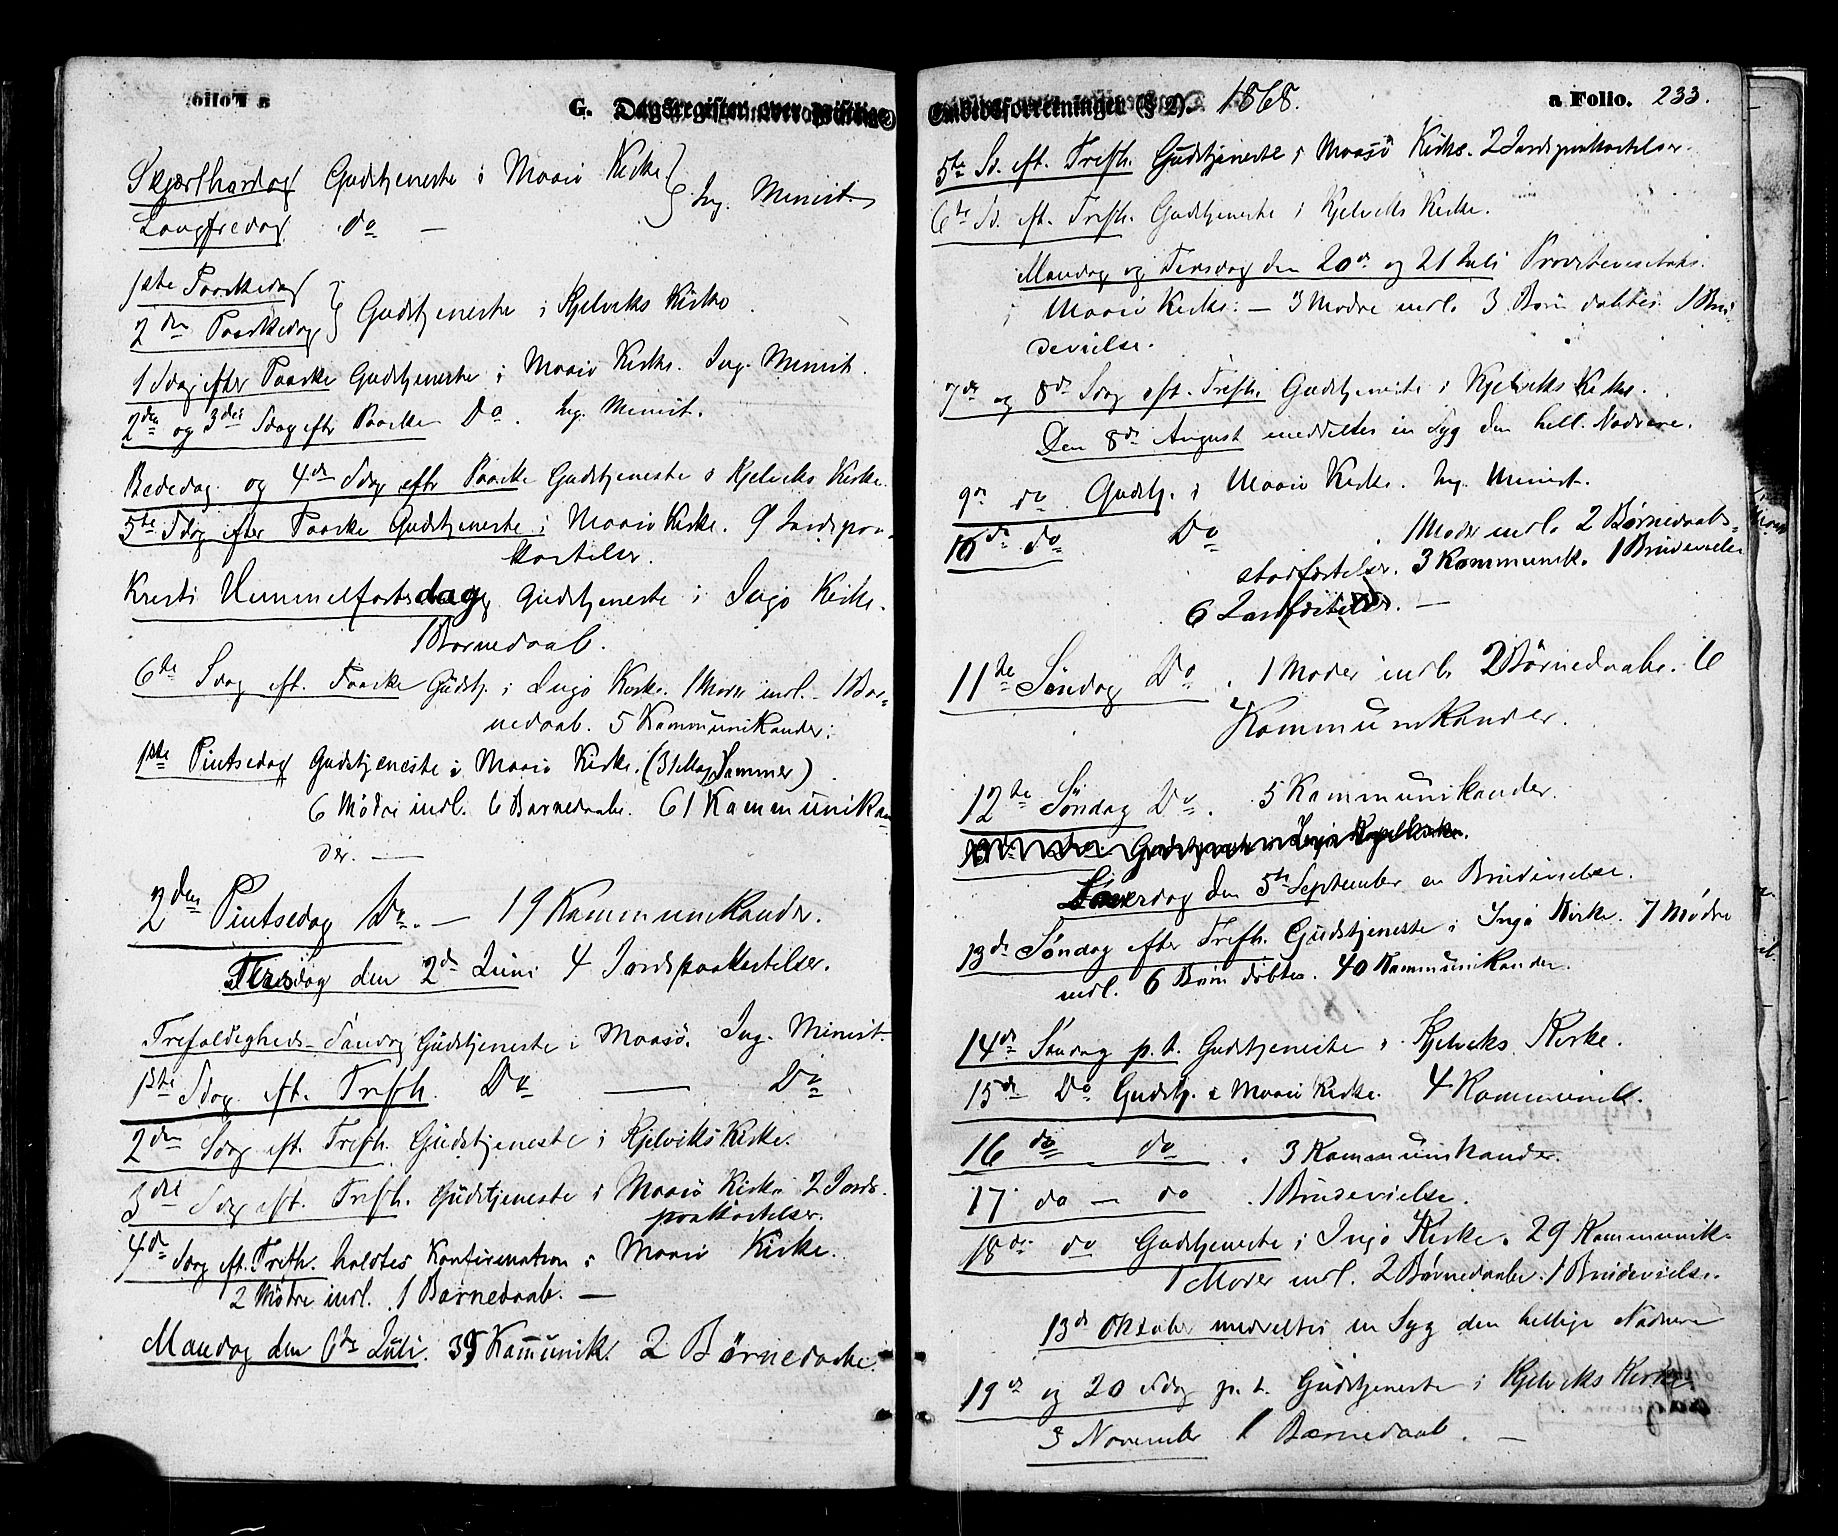 a Folio.
G. Dagsregister over geistlige
Skjærthorsdag Gudstjeneste i Maasø Kirke } Ing. Minist.
Langfredag do —
1ste Paaskedag } Gudstjeneste i Kjelviks Kirke
2den Paaskedag
1 Sdag efter Paaske Gudstjeneste i Maasø Kirke. Ing. Minist.
2den og 3die Sdag eftr Paaske Do. Ing. Minist.
Bededag og 4de Sdag eftr Paaske Gudstjeneste i Kjelviks Kirke.
5te Sdag efter Paaske Gudstjeneste i Maasø Kirke. 9 Jordspaa-
kastelser.
Kristi Himmelfartsdag Gudstjeneste i Ingø Kirke.
1 Barnedaab.
6te Sdag eft. Paaske Gudstj. i Ingø Kirke. 1 Moder indl. 1 Bar-
nedaab. 5 Kommunikander.
1ste Pintsedag Gudstjeneste i Maasø Kirke. (31 May, Sammer)
6 Mødre indl. 6 Barnedaabe. 61 Kommunikan-
der. —
2den Pintsedag Do. — 19 Kommunikander.
Tirsdag den 2de Juni 4 Jordspaakastelser.
Trefoldigheds-Søndag Gudstjeneste i Maasø. Ing. Minist.
1ste Sdag eft. Trefh. Do — Do
2den Sdag eft. Trefh. Gudstjeneste i Kjelviks Kirke.
3die Sdag eft. Trefh. Gudstjeneste i Maasø Kirke 2 Jords-
paakastelser.
4de Sdag eft. Trefh. holdtes Konfirmation i Maasø Kirke.
2 Mødre indl. 1 Barnedaab. —
Mandag den 6te Juli. 39 Kommunik. 2 Børnedaabe.
Embedsforretninger (§ 2). 1868. a Folio. 233.
5te Sd. eft. Trefh. Gudstjeneste i Maasø Kirke. 2 Jordspaakastelser.
6te Sd. eft. Trefh. Gudstjeneste i Kjelviks Kirke.
Mandag og Tirsdag den 20de og 21 Juli Provstevisitats
i Maasø Kirke. — 3 Mødre indl. 3 Børn døbtes. 1 Bru-
devielse.
7de og 8de Sdag eft. Trefh. Gudstjeneste i Kjelviks Kirke.
Den 8de August meddeltes en Syg den hell. Nadvere.
9de do Gudstj. i Maasø Kirke. Ing. Minist.
10de do Do . 1 Moder indl. 2 Børnedaabs-
stadfæstelser. 3 Kommunik. 1 Brudevielse
6 Jordfæstelser. —
11te Søndag Do . 1 Moder indl. 2 Børnedaabe. 6
Kommunikander.
12te Søndag Do . 5 Kommunikander.
Løverdag den 5te September en Brudevielse.
13de Søndag efter Trefh. Gudstjeneste i Ingø Kirke. 7 Mødre
indl. 6 Børn døbtes. 40 Kommunikander.
14de Søndag p. t. Gudstjeneste i Kjelviks Kirke.
15de Do Gudstj. i Maasø Kirke. 4 Kommunik.
16 do do . 3 Kommunikander.
17 do — do . 1 Brudevielse.
18de do Gudstjeneste i Ingø Kirke. 29 Kommunik.
1 Moder indl. 2 Børnedaabe. 1 Brudevielse.
13de Oktober meddeltes en Syg den hellige Nadvere
19de og 20 Sdag p. t. Gudstjeneste i Kjelviks Kirke
3 November 1 Barnedaab. —